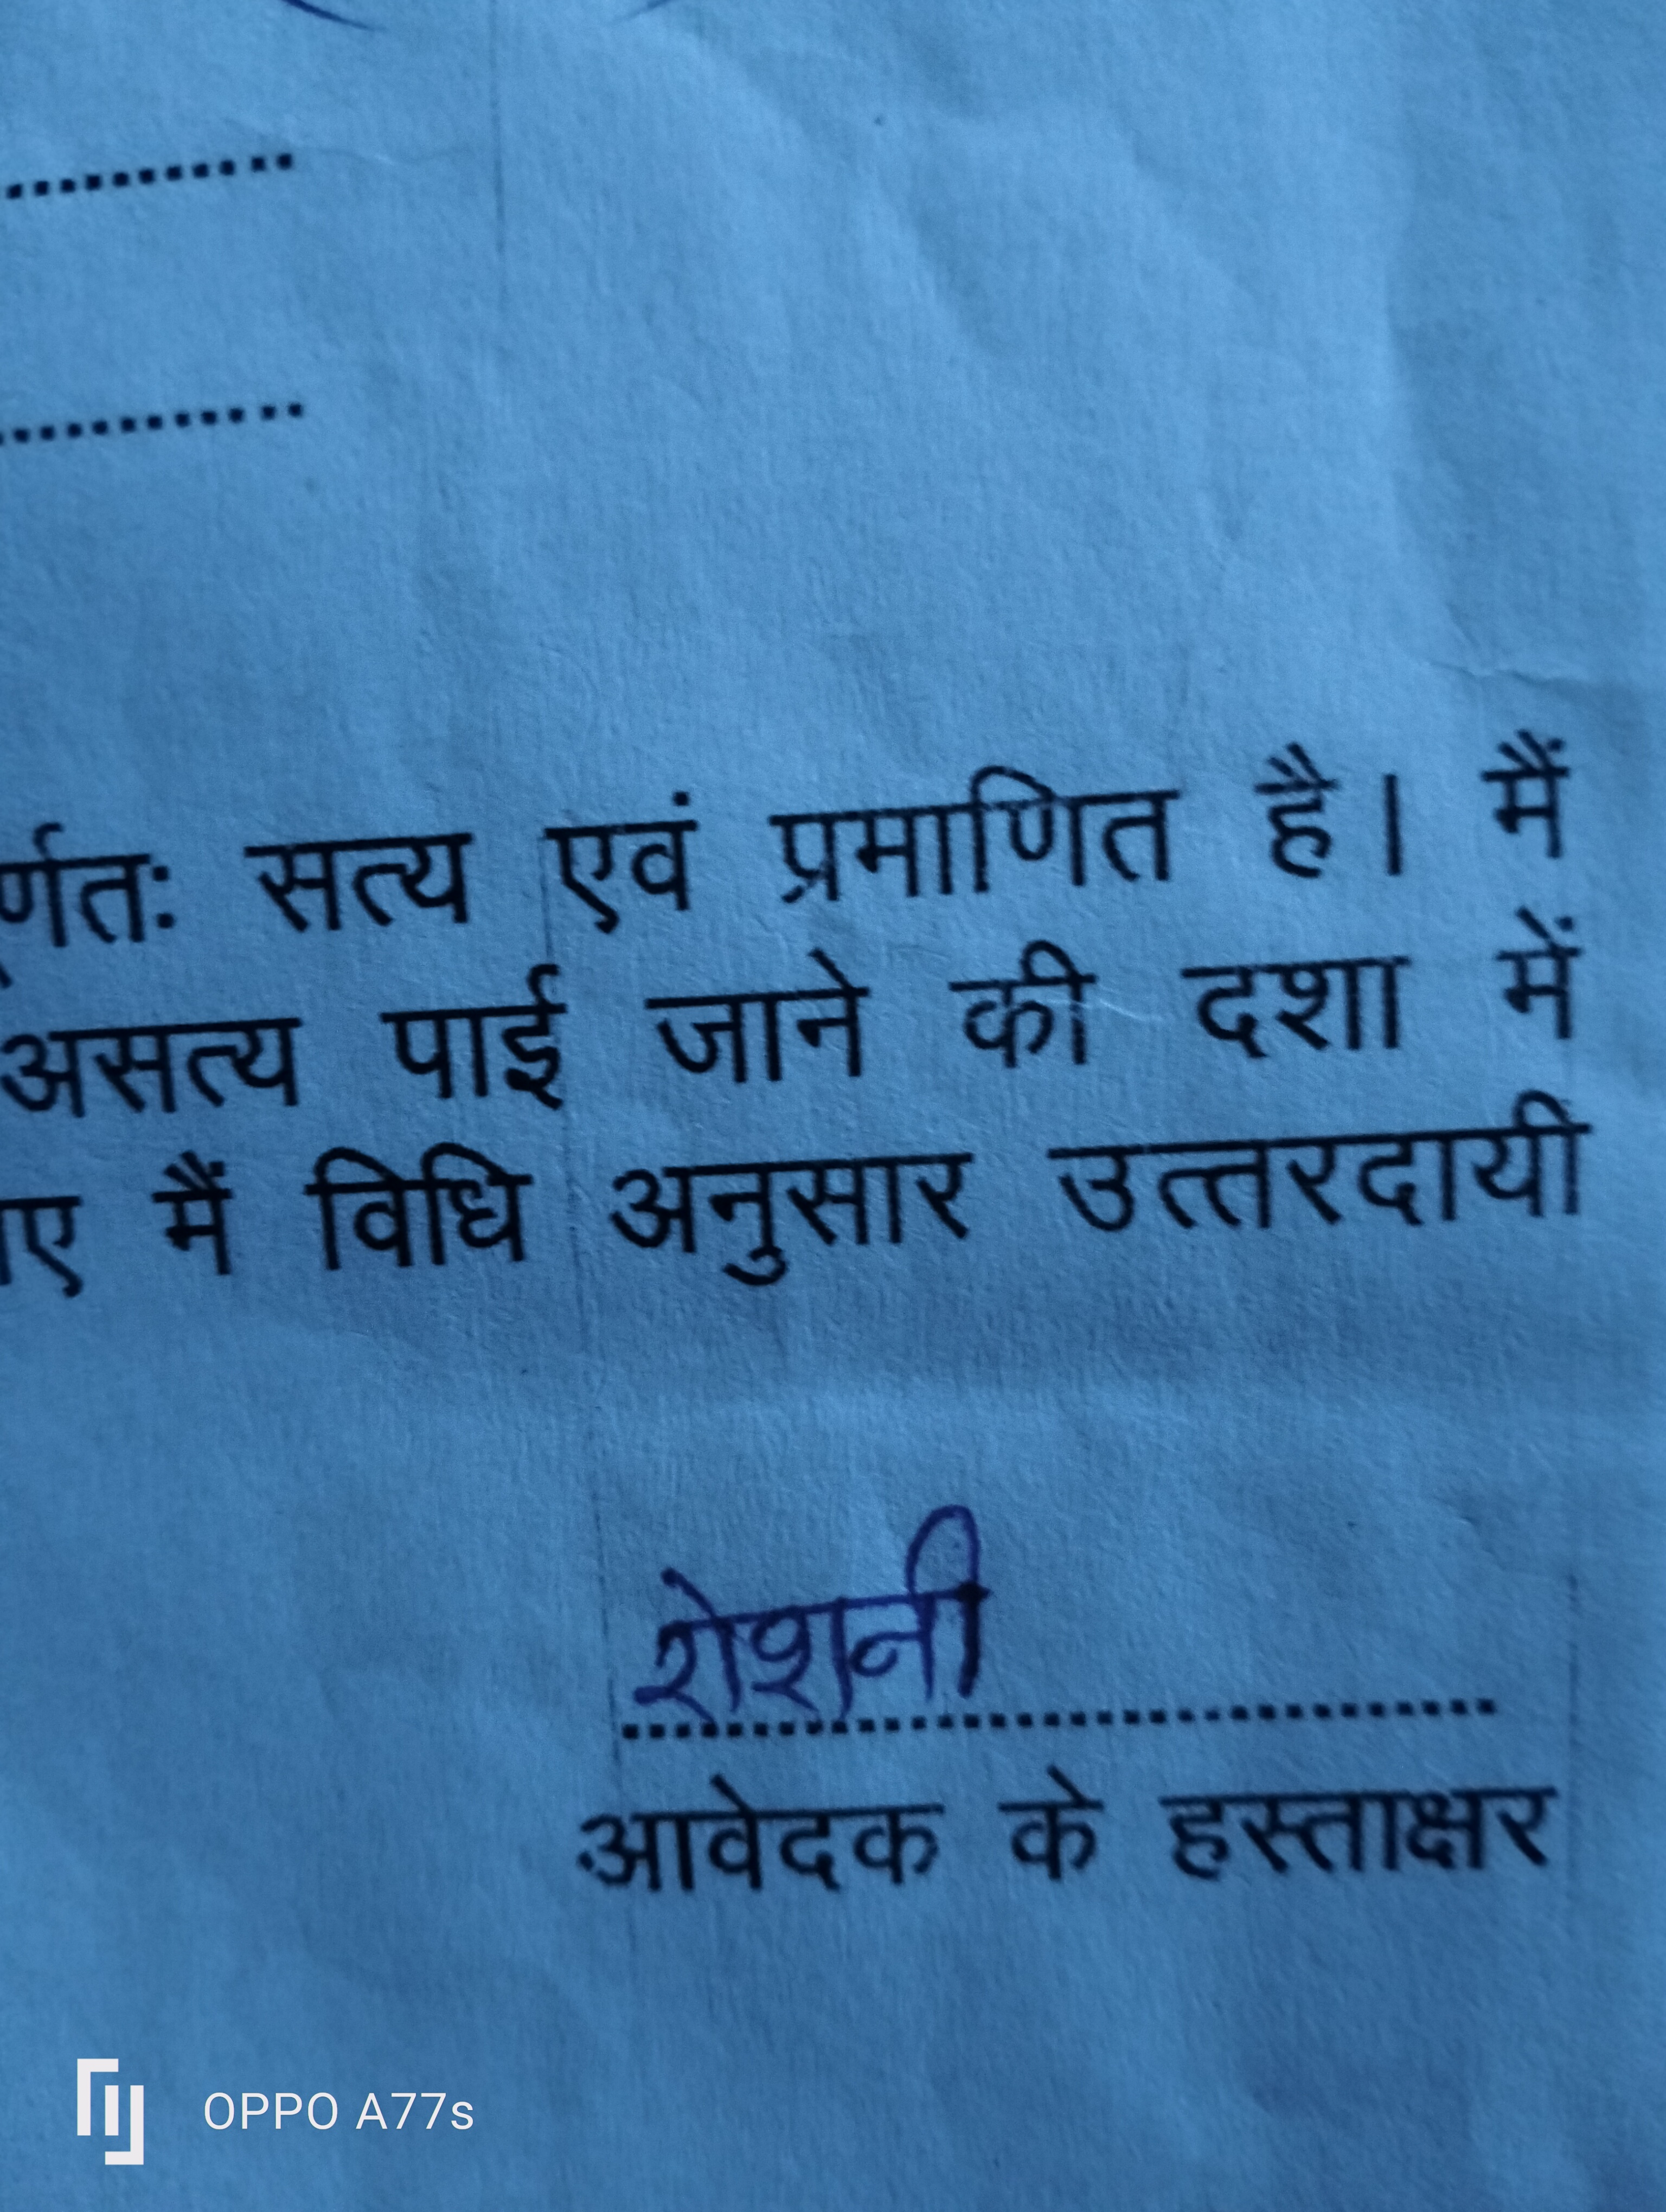 र्णतः सत्य एवं प्रमाणित है। मैं
असत्य पाई जाने की दशा में
मैं विधि अनुसार उत्तरदायी
रोशनी
आवेदक के हस्ताक्षर
OPPO A77s